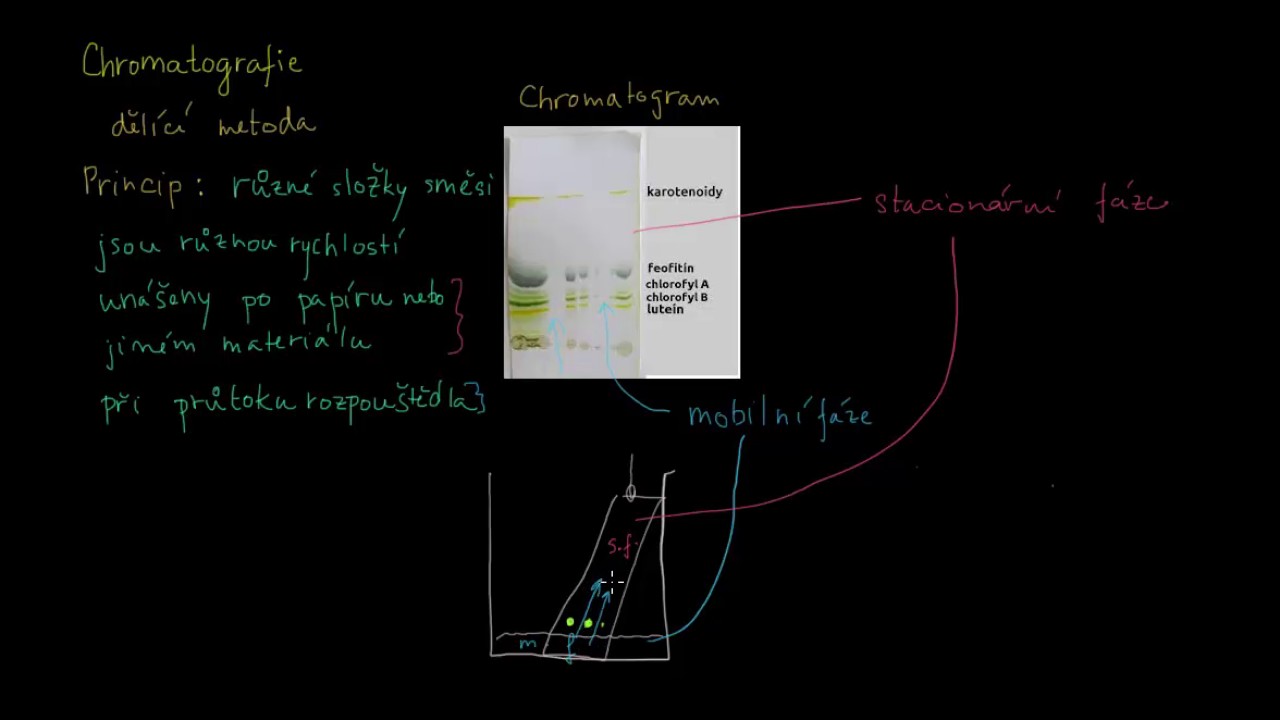 Chromatografie
dělící metoda
Princip: různé složky směsi
jsou různou rychlostí
unášeny po papíru nebo
jiném materiálu
při průtoku rozpouštědla
Chromatogram
karotenoidy
feofitín
chlorofyl A
chlorofyl B
luteín
stacionární fáze
mobilní fáze
s.f.
m f